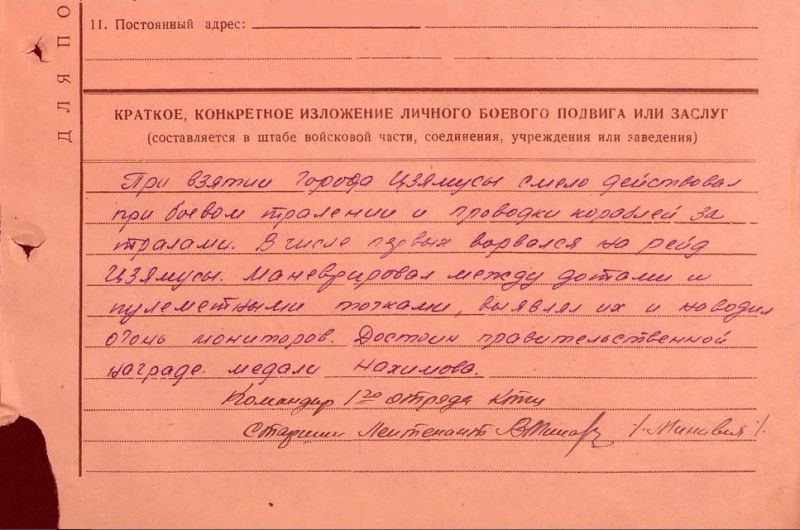 ДЛЯ ПО
11. Постоянный адрес:
КРАТКОЕ, КОНКРЕТНОЕ ИЗЛОЖЕНИЕ ЛИЧНОГО БОЕВОГО ПОДВИГА ИЛИ ЗАСЛУГ
(составляется в штабе войсковой части, соединения, учреждения или заведения)
При взятии города Цзямусы смело действовал
при боевом тралении и проводки кораблей за
тралами. В числе первых ворвался на рейд
Цзямусы. Маневрировал между дотами и
пулеметными точками, выявлял их и наводил
огонь мониторов. Достоин правительственной
награде медали Нахимова.
Командир 1го отряда Ктщ
Старший Лейтенант